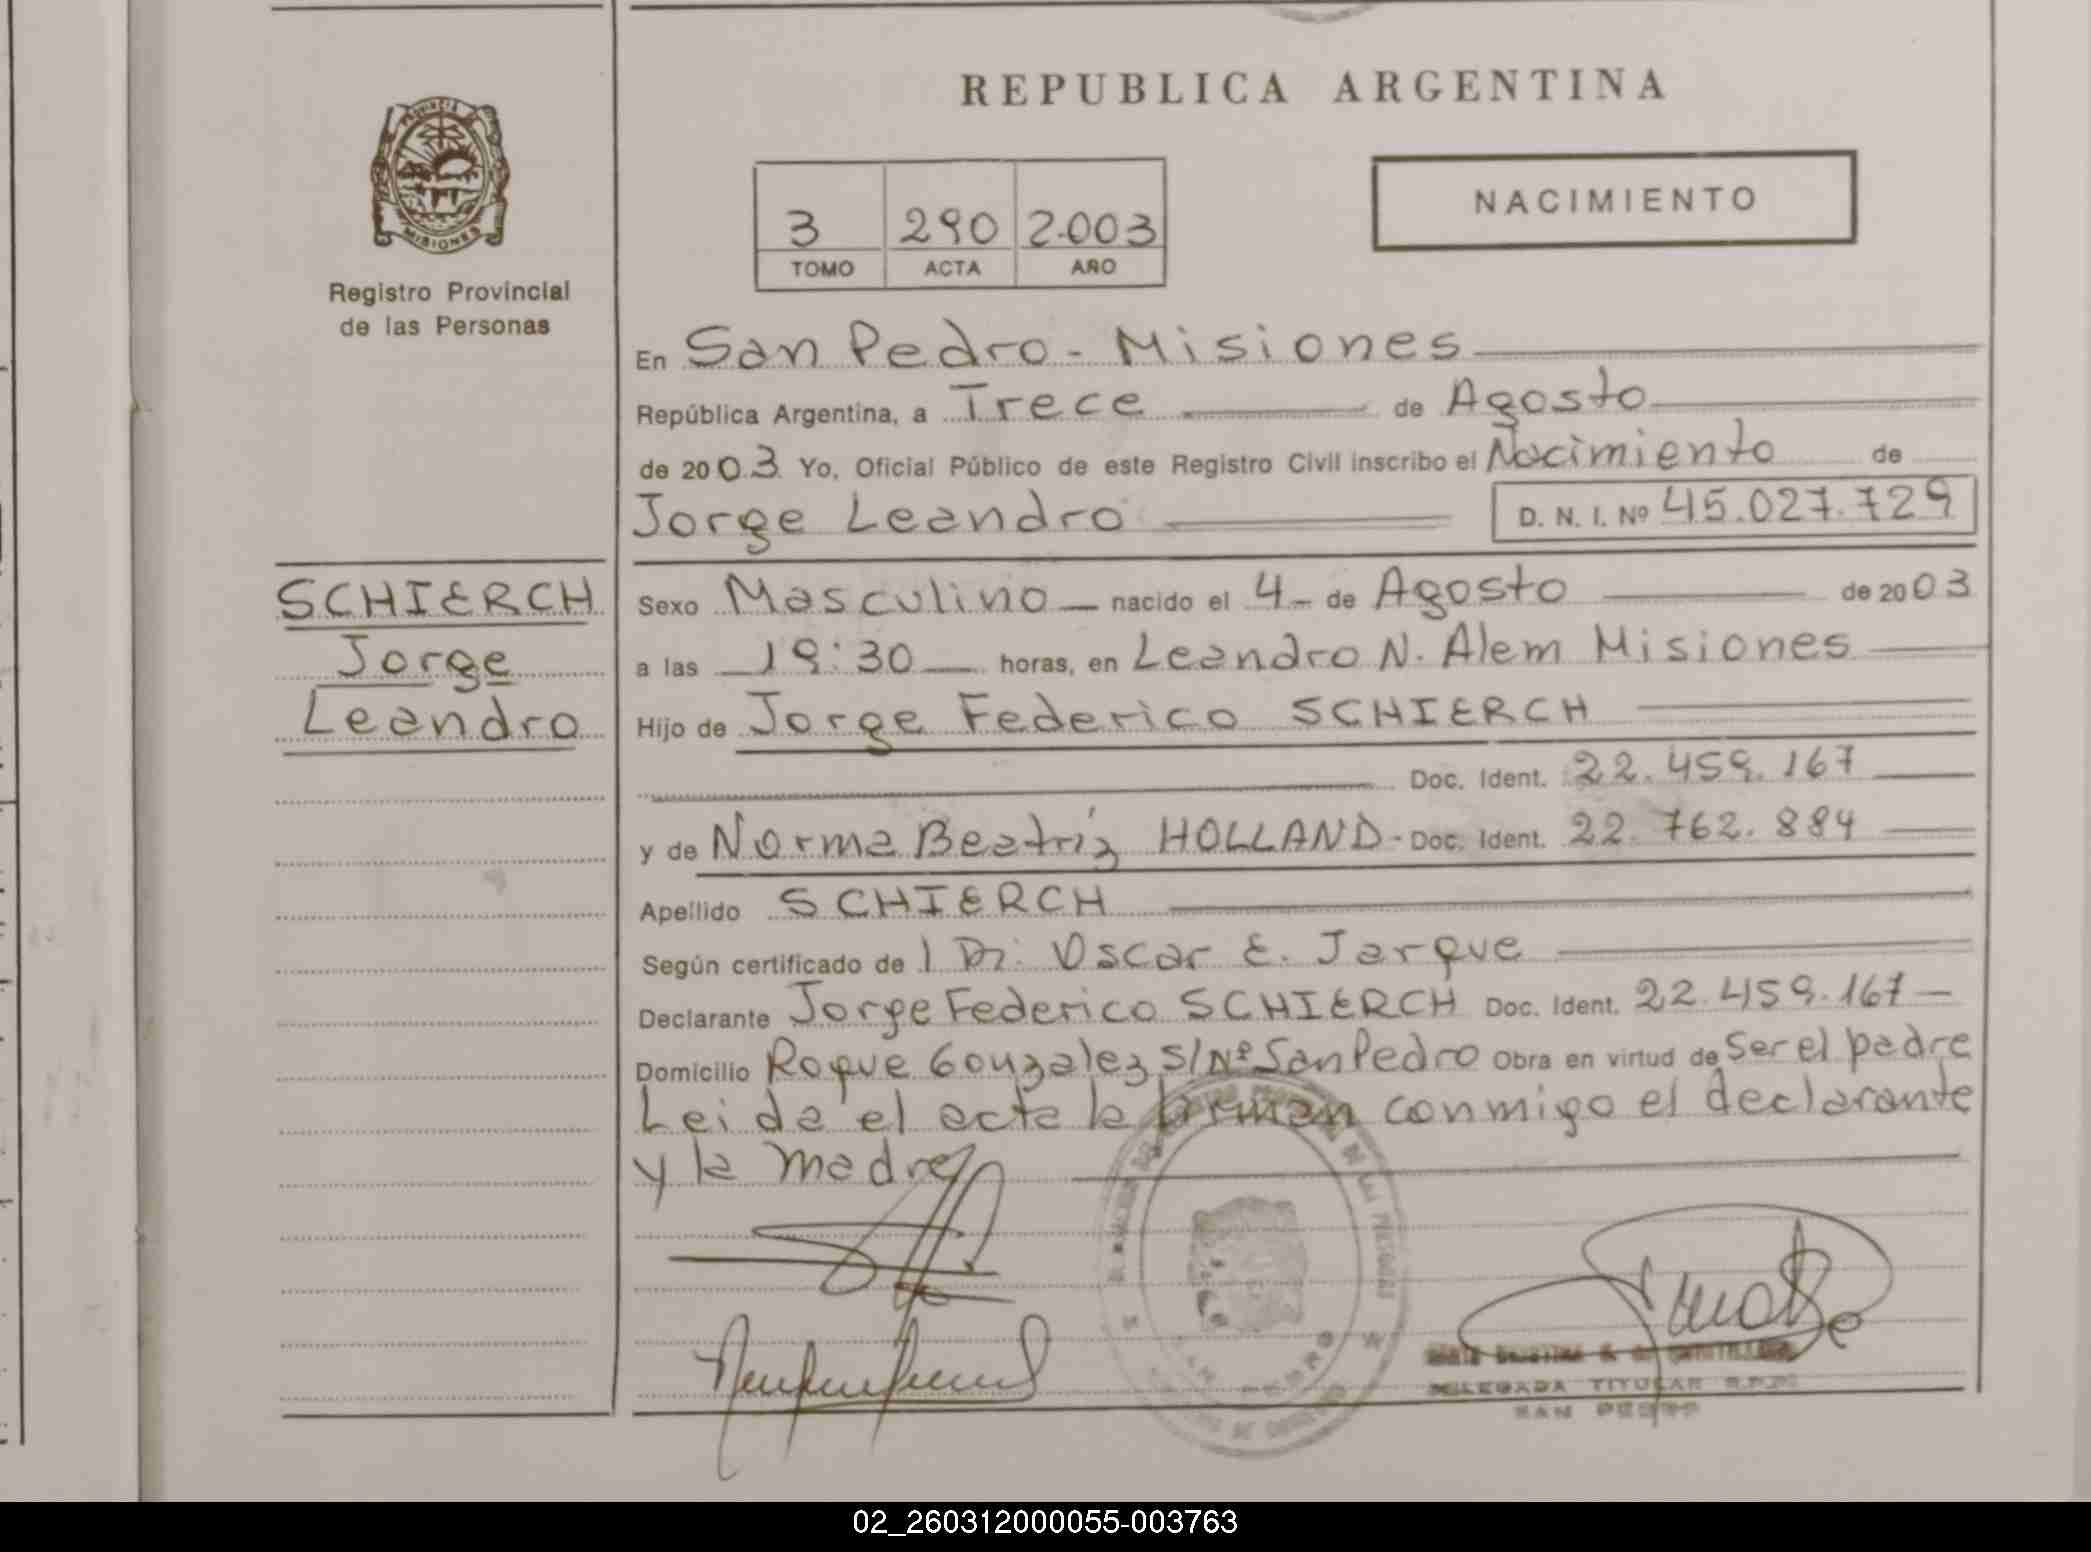 REPUBLICA ARGENTINA
PROVINCIA DE
MISIONES
Registro Provincial
de las Personas
3 290 2.003
TOMO ACTA AÑO
NACIMIENTO
En San Pedro - Misiones
República Argentina, a Trece de Agosto
de 2003 Yo, Oficial Público de este Registro Civil inscribo el Nacimiento de
Jorge Leandro D. N. I. Nº 45.027.729
SCHIERCH
Jorge
Leandro
Sexo Masculino nacido el 4 - de Agosto de 2003
a las 19:30 horas, en Leandro N. Alem Misiones
Hijo de Jorge Federico SCHIERCH
Doc. Ident. 22.459.167
y de Norma Beatríz HOLLAND - Doc. Ident. 22.762.884
Apellido SCHIERCH
Según certificado de l Dr. Oscar E. Jarque
Declarante Jorge Federico SCHIERCH Doc. Ident. 22.459.167 -
Domicilio Roque Gonzalez S/Nº San Pedro Obra en virtud de Ser el padre
Leida el acta la firman conmigo el declarante
y la madre
DE LAS PERSONAS
SAN PEDRO
DELEGADA TITULAR R.P.P.
SAN PEDRO
02_260312000055-003763